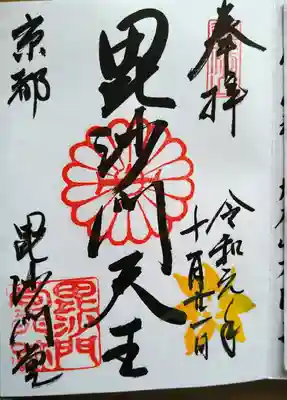 奉拝
令和元年
十月廿一日
毘沙門天王
京都
毘沙門堂